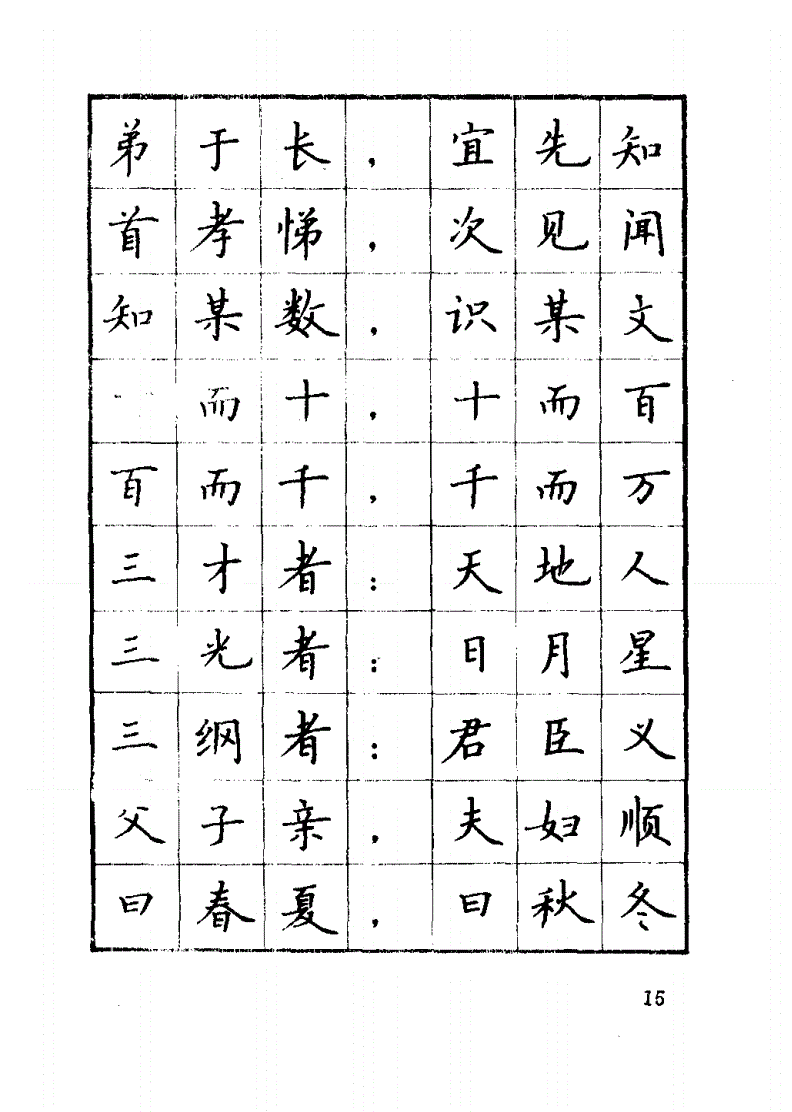 弟于长，宜先知
首孝悌，次见闻
知某数，识某文
一而十，十而百
百而千，千而万
三才者：天地人
三光者：日月星
三纲者：君臣义
父子亲，夫妇顺
曰春夏，曰秋冬
15